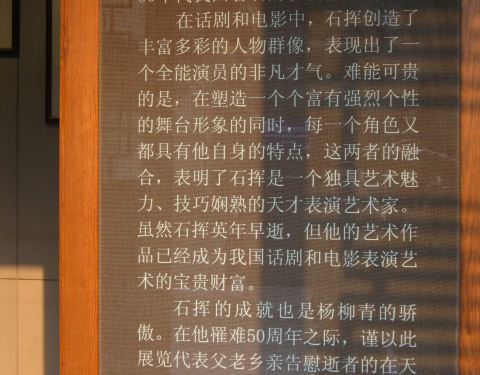 在话剧和电影中，石挥创造了
丰富多彩的人物群像，表现出了一
个全能演员的非凡才气。难能可贵
的是，在塑造一个个富有强烈个性
的舞台形象的同时，每一个角色又
都具有他自身的特点，这两者的融
合，表明了石挥是一个独具艺术魅
力、技巧娴熟的天才表演艺术家。
虽然石挥英年早逝，但他的艺术作
品已经成为我国话剧和电影表演艺
术的宝贵财富。
石挥的成就也是杨柳青的骄
傲。在他罹难50周年之际，谨以此
展览代表父老乡亲告慰逝者的在天